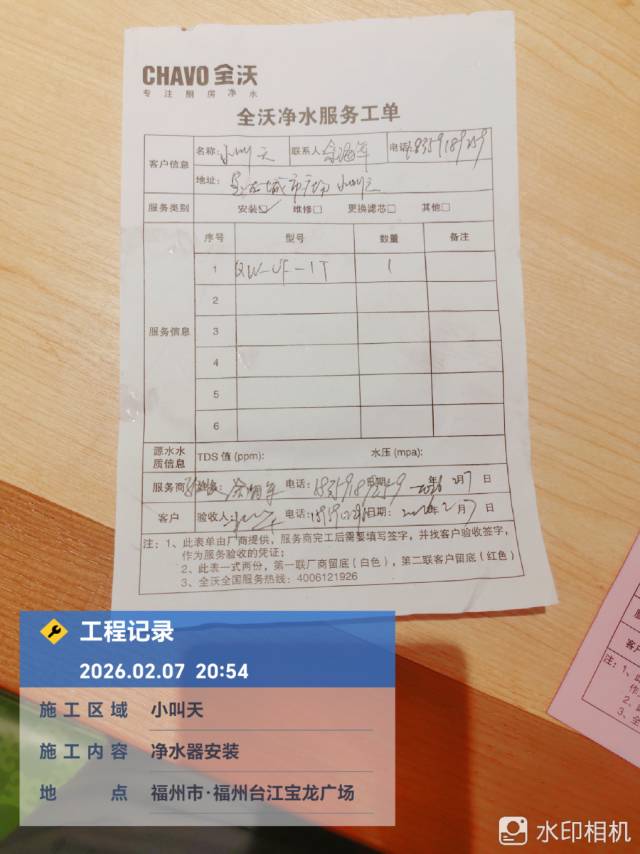 CHAVO 全沃
专注厨房净水
全沃净水服务工单
客户信息 名称: 小叫天 联系人 电话:
地址: 宝龙城市广场 小叫天
服务类别 安装☑ 维修□ 更换滤芯□ 其他□
服务信息 序号 型号 数量 备注
1 QW-UF-1T 1
2
3
4
5
6
源水水质信息 TDS 值 (ppm): 水压 (mpa):
服务商 电话: 18359189259 日期: 2026年2月7日
客户 验收人: 电话: 日期: 2026年2月7日
注:1、此表单由厂商提供,服务商完工后需要填写签字,并找客户验收签字,
作为服务验收的凭证;
2、此表一式两份,第一联厂商留底(白色),第二联客户留底(红色)
3、全沃全国服务热线:4006121926
工程记录
2026.02.07 20:54
施工区域 小叫天
施工内容 净水器安装
地点 福州市·福州台江宝龙广场
水印相机